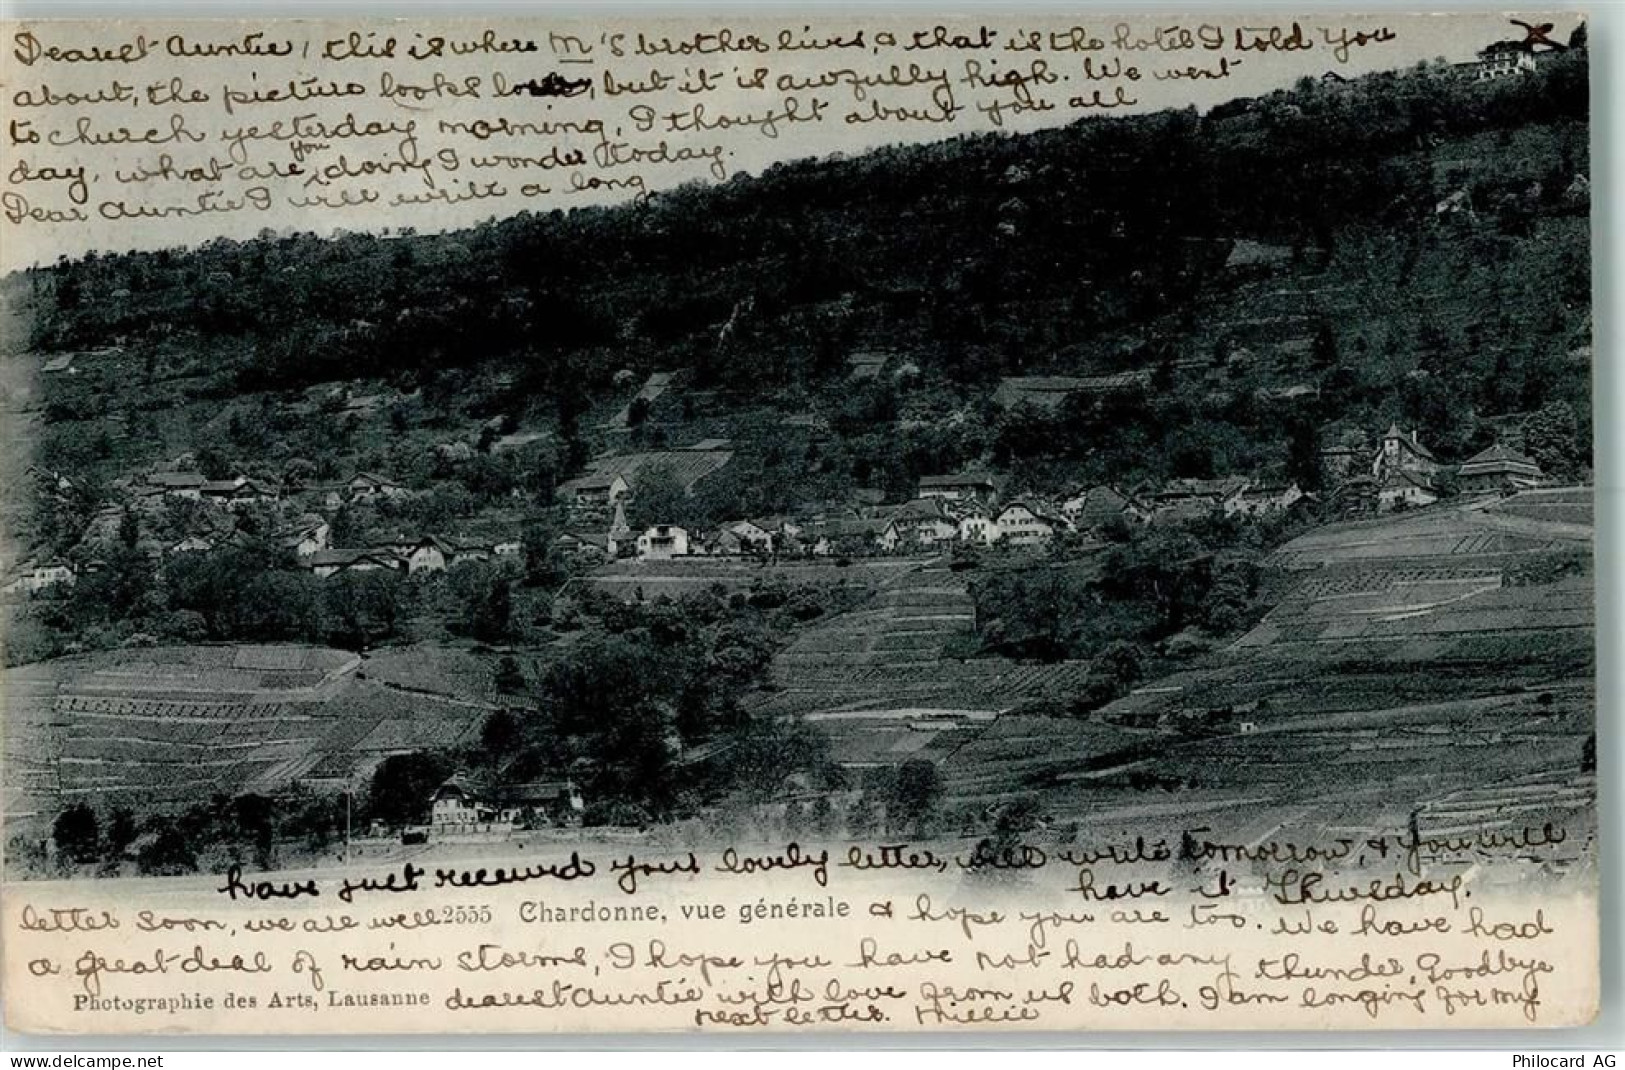 Dearest Auntie, this is where M's brother lives, & that is the hotel I told you
about, the picture looks low, but it is awfully high. We went
to church yesterday morning, I thought about you all
day, what are you doing I wonder today.
Dear Auntie I will write a long
have just received your lovely letter, will write tomorrow, & you will
have it Thursday.
letter soon, we are well & hope you are too. We have had
2555 Chardonne, vue générale
a great deal of rain storms, I hope you have not had any thunder, Goodbye
Photographie des Arts, Lausanne
dearest Auntie with love from us both. I am longing for my
next letter. Millie
delcampe.net
Philocard AG